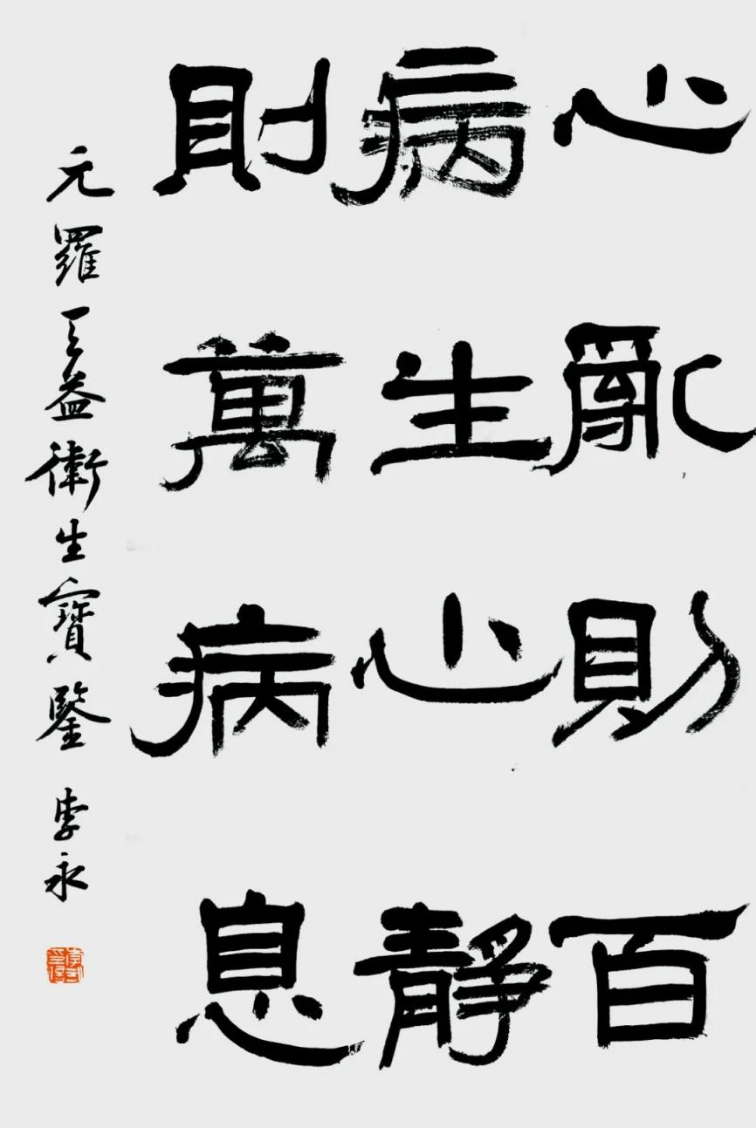 心亂則百
病生心靜
則萬病息
元羅天益衛生寶鑒 李永